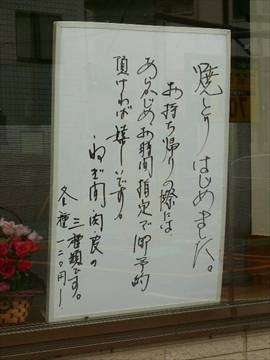 焼とりはじめました。
お持ち帰りの際には、
あらかじめお時間指定で御予約
頂ければ嬉しいです。
ねぎ間・肉・皮の
三種類です。
各種一二〇円〜